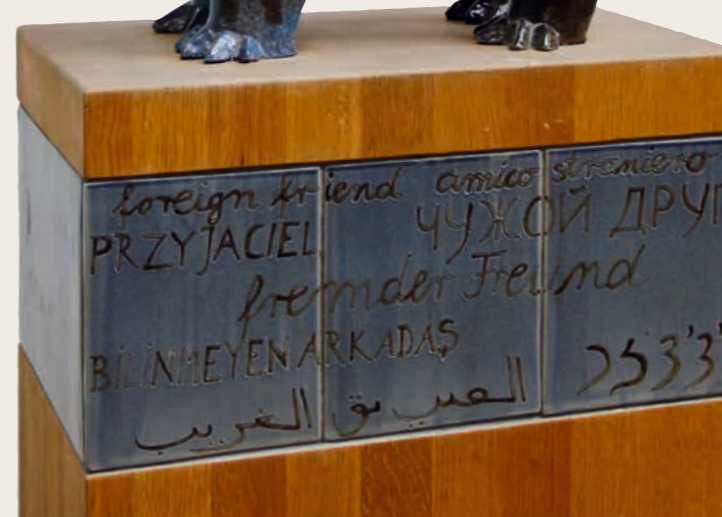 foreign friend amico straniero
PRZYJACIEL ЧУЖОЙ ДРУГ
fremder Freund
BİLİNMEYEN ARKADAŞ
الصديق الغريب